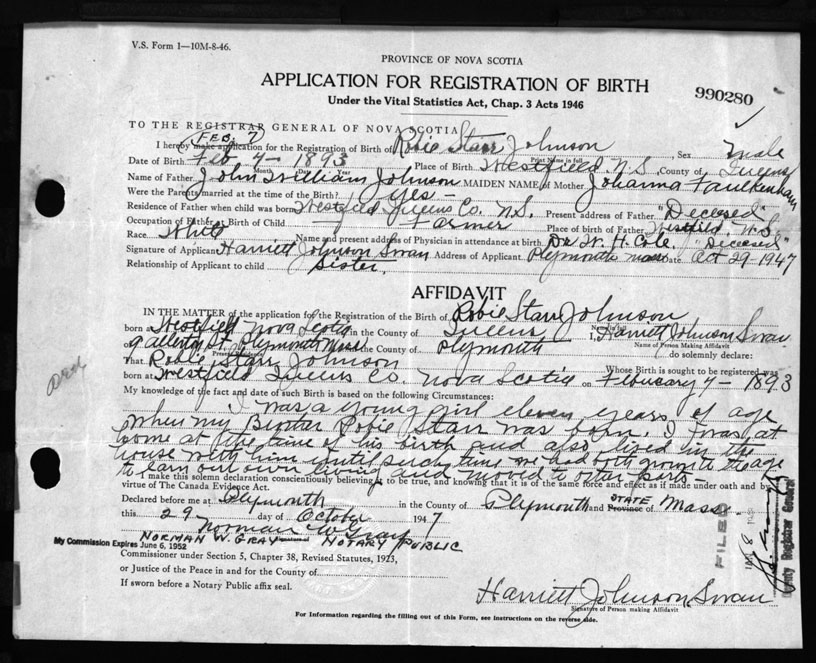 V.S. Form 1—10M-8-46.
PROVINCE OF NOVA SCOTIA
APPLICATION FOR REGISTRATION OF BIRTH
990280
Under the Vital Statistics Act, Chap. 3 Acts 1946
TO THE REGISTRAR GENERAL OF NOVA SCOTIA
FEB. 7
I hereby make application for the Registration of Birth of Robie Starr Johnson, Sex Male
Print Name in full
Date of Birth Feb 4 - 1893 Place of Birth Westfield N.S. County of Queens
Month Day Year
Name of Father John William Johnson MAIDEN NAME of Mother Johanna Faulkenham
Were the Parents married at the time of the Birth? Yes -
Residence of Father when child was born Westfield Queens Co. N.S. Present address of Father "Deceased"
Occupation of Father at Birth of Child Farmer Place of birth of Father Westfield N.S.
Race White Name and present address of Physician in attendance at birth Dr W. H. Cole. "Deceased"
Signature of Applicant Harriett Johnson Swan Address of Applicant Plymouth Mass Date Oct 29 1947
Relationship of Applicant to child Sister.
AFFIDAVIT
IN THE MATTER of the application for the Registration of the Birth of Robie Starr Johnson
Name in full
born at Westfield Nova Scotia in the County of Queens I, Harriett Johnson Swan
Name of Person Making Affidavit
of Allerton St. Plymouth Mass in the County of Plymouth do solemnly declare:
That Robie Starr Johnson Whose Birth is sought to be registered was
born at Westfield Queens Co. Nova Scotia on Febuary 4 - 1893
My knowledge of the fact and date of such Birth is based on the following Circumstances:
I was a young girl eleven years of age
when my Brother Robie Starr was born. I was at
home at the time of his birth and also lived in the
house with him until such time we had both grown to the age
to earn our own living and moved to other parts -
I make this solemn declaration conscientiously believing it to be true, and knowing that it is of the same force and effect as if made under oath and by
virtue of The Canada Evidence Act.
Declared before me at Plymouth in the County of Plymouth and Province of STATE Mass.
this 29 day of October 1947
Norman W. Gray
NORMAN W. GRAY NOTARY PUBLIC
My Commission Expires June 6, 1952
Commissioner under Section 5, Chapter 38, Revised Statutes, 1923,
or Justice of the Peace in and for the County of
If sworn before a Notary Public affix seal.
FILED
Harriett Johnson Swan
Signature of Person making Affidavit
For Information regarding the filling out of this Form, see instructions on the reverse side.